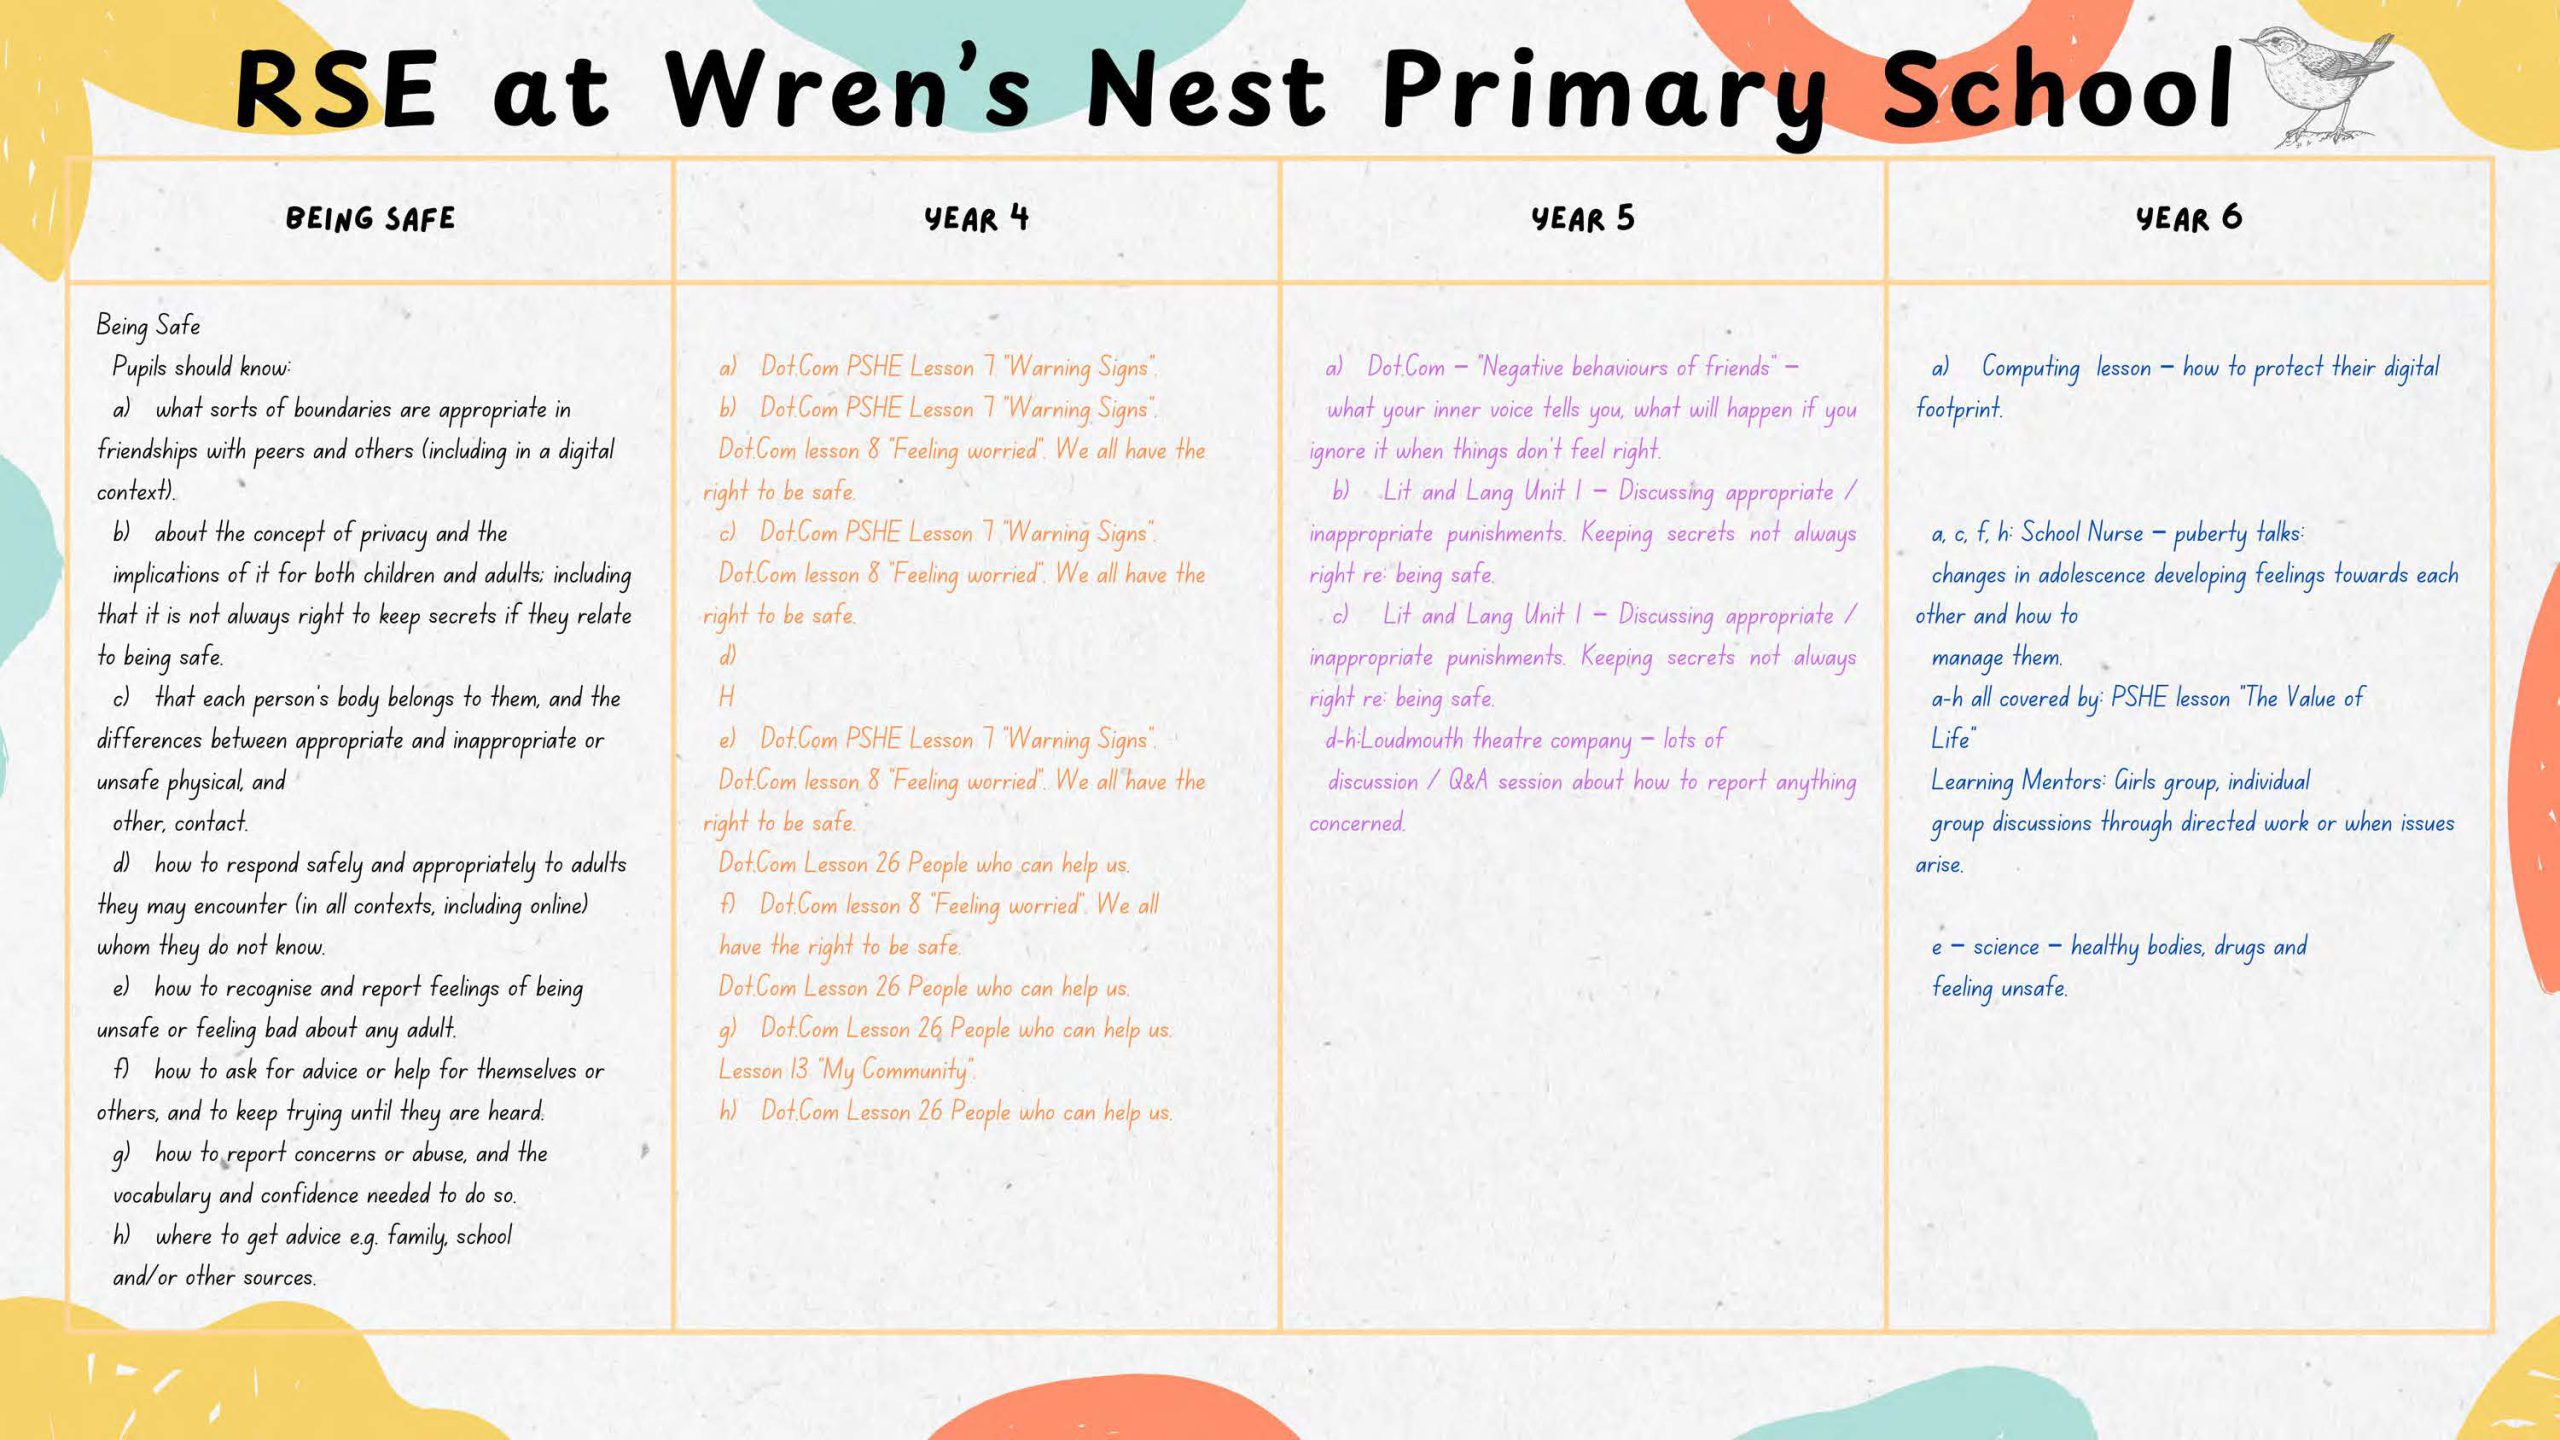 RSE at Wren's Nest Primary School
BEING SAFE
Being Safe
Pupils should know:
a) what sorts of boundaries are appropriate in
friendships with peers and others (including in a digital
context).
b) about the concept of privacy and the
implications of it for both children and adults; including
that it is not always right to keep secrets if they relate
to being safe.
c) that each person's body belongs to them, and the
differences between appropriate and inappropriate or
unsafe physical, and
other, contact.
d) how to respond safely and appropriately to adults
they may encounter (in all contexts, including online)
whom they do not know.
e) how to recognise and report feelings of being
unsafe or feeling bad about any adult.
f) how to ask for advice or help for themselves or
others, and to keep trying until they are heard.
g) how to report concerns or abuse, and the
vocabulary and confidence needed to do so.
h) where to get advice e.g. family, school
and/or other sources.
YEAR 4
a) Dot.Com PSHE Lesson 7 "Warning Signs".
b) Dot.Com PSHE Lesson 7 "Warning Signs".
Dot.Com lesson 8 "Feeling worried". We all have the
right to be safe.
c) Dot.Com PSHE Lesson 7 "Warning Signs".
Dot.Com lesson 8 "Feeling worried". We all have the
right to be safe.
d)
H
e) Dot.Com PSHE Lesson 7 "Warning Signs".
Dot.Com lesson 8 "Feeling worried". We all have the
right to be safe.
Dot.Com Lesson 26 People who can help us.
f) Dot.Com lesson 8 "Feeling worried". We all
have the right to be safe.
Dot.Com Lesson 26 People who can help us.
g) Dot.Com Lesson 26 People who can help us.
Lesson 13 "My Community".
h) Dot.Com Lesson 26 People who can help us.
YEAR 5
a) Dot.Com – "Negative behaviours of friends" –
what your inner voice tells you, what will happen if you
ignore it when things don't feel right.
b) Lit and Lang Unit 1 – Discussing appropriate /
inappropriate punishments. Keeping secrets not always
right re: being safe.
c) Lit and Lang Unit 1 – Discussing appropriate /
inappropriate punishments. Keeping secrets not always
right re: being safe.
d-h:Loudmouth theatre company – lots of
discussion / Q&A session about how to report anything
concerned.
YEAR 6
a) Computing lesson – how to protect their digital
footprint.
a, c, f, h: School Nurse – puberty talks:
changes in adolescence developing feelings towards each
other and how to
manage them.
a-h all covered by: PSHE lesson "The Value of
Life"
Learning Mentors: Girls group, individual
group discussions through directed work or when issues
arise.
e – science – healthy bodies, drugs and
feeling unsafe.